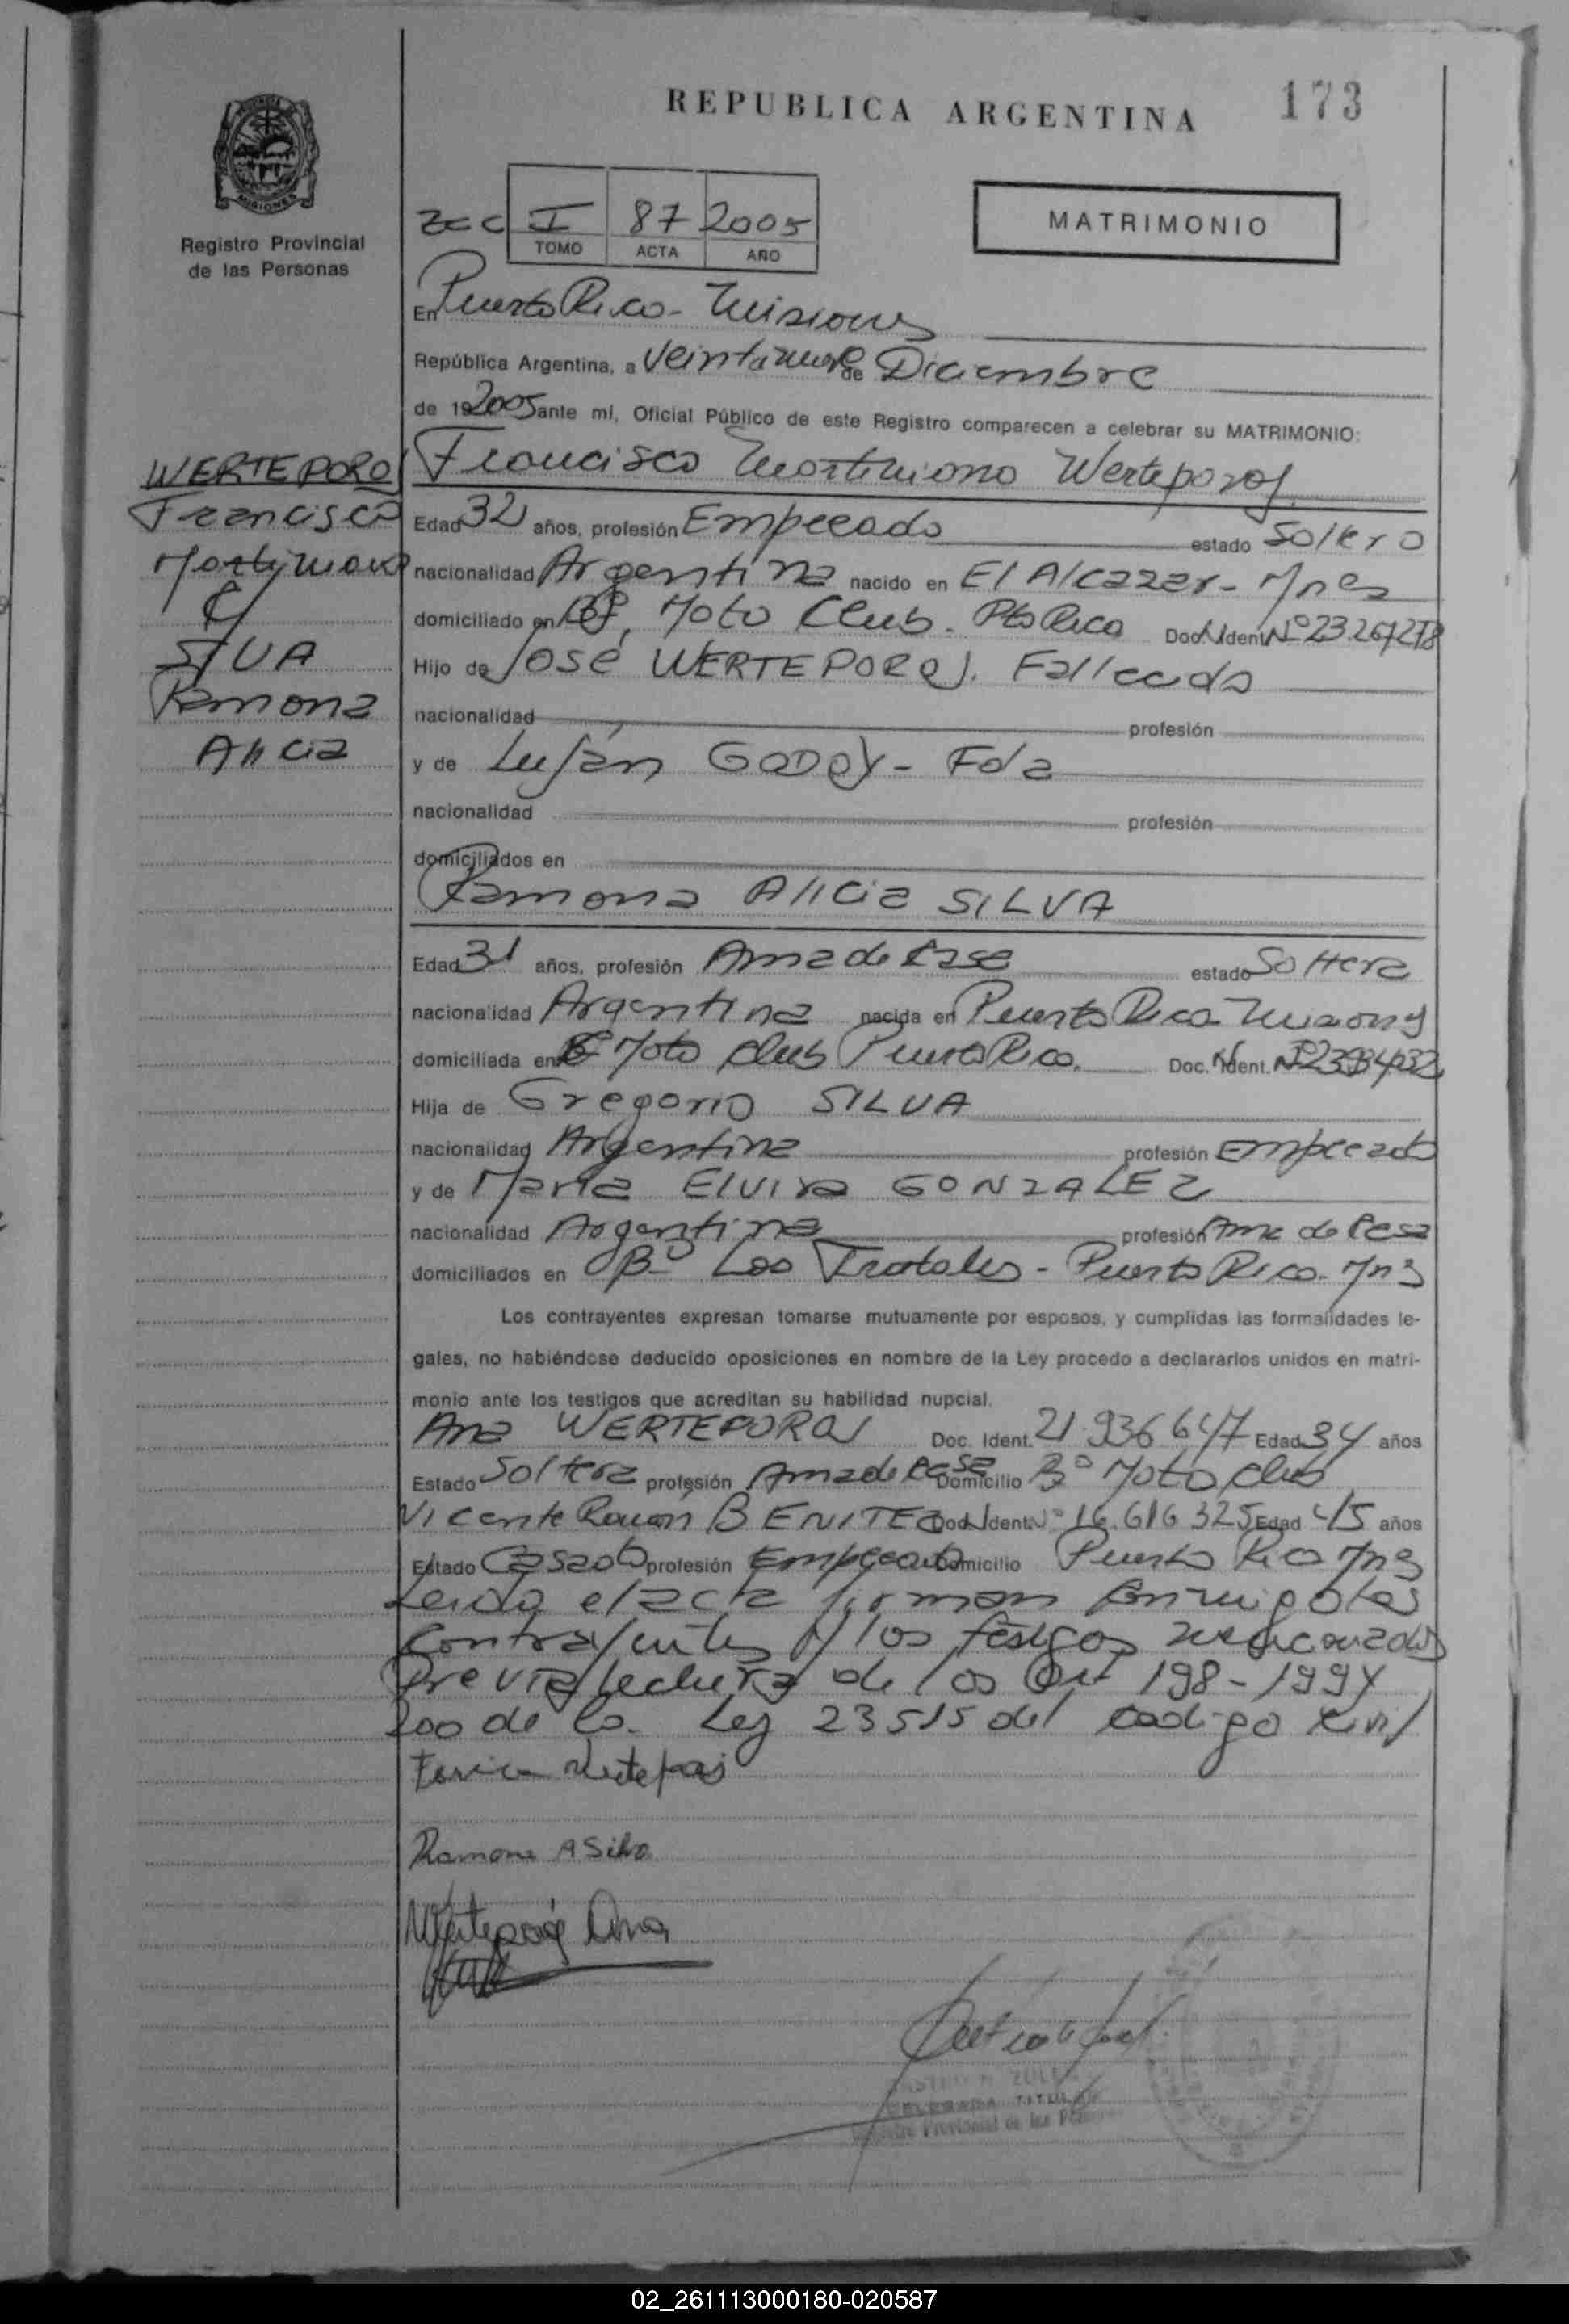 REPUBLICA ARGENTINA 173
MISIONES
Registro Provincial
de las Personas
I 87 2005
TOMO ACTA AÑO
MATRIMONIO
En Puerto Rico - Misiones
República Argentina, a Veintinueve de Diciembre
de 19 2005 ante mí, Oficial Público de este Registro comparecen a celebrar su MATRIMONIO:
WERTEPOROJ
Francisco
Martimiano
C/
SILVA
Ramona
Alicia
Francisco Martimiano Werteporoj
Edad 32 años, profesión Empleado estado Soltero
nacionalidad Argentina nacido en El Alcazar - Mnes
domiciliado en Bº Moto Club - Pto Rico Doc. Ident. Nº 23.267.278
Hijo de José WERTEPOROJ. Fallecido
nacionalidad profesión
y de Luján GODOY - Fda
nacionalidad profesión
domiciliados en
Ramona Alicia SILVA
Edad 31 años, profesión Ama de Casa estado Soltera
nacionalidad Argentina nacida en Puerto Rico Misiones
domiciliada en Bº Moto Club Puerto Rico. Doc. Ident. Nº
Hija de Gregorio SILVA
nacionalidad Argentina profesión Empleado
y de Maria Elvira GONZALEZ
nacionalidad Argentina profesión Ama de Casa
domiciliados en Bº Los - Puerto Rico - Mns
Los contrayentes expresan tomarse mutuamente por esposos, y cumplidas las formalidades le-
gales, no habiéndose deducido oposiciones en nombre de la Ley procedo a declararlos unidos en matri-
monio ante los testigos que acreditan su habilidad nupcial.
Ana WERTEPOROJ Doc. Ident. 21.936.647 Edad 34 años
Estado Soltera profesión Ama de Casa Domicilio Bº Moto Club
Vicente Ramón BENITEZ Doc. Ident. Nº 16.616.325 Edad 45 años
Estado Casado profesión Empleado Domicilio Puerto Rico Mns
Leida el acta firman conmigo los
contrayentes y los testigos mencionados
Previa lectura de los Art 198 - 199 y
200 de la Ley 23515 del Codigo Civil
Ramona A Silva
Werteporoj Ana
TITULAR
Registro Provincial de las Personas
02_261113000180-020587